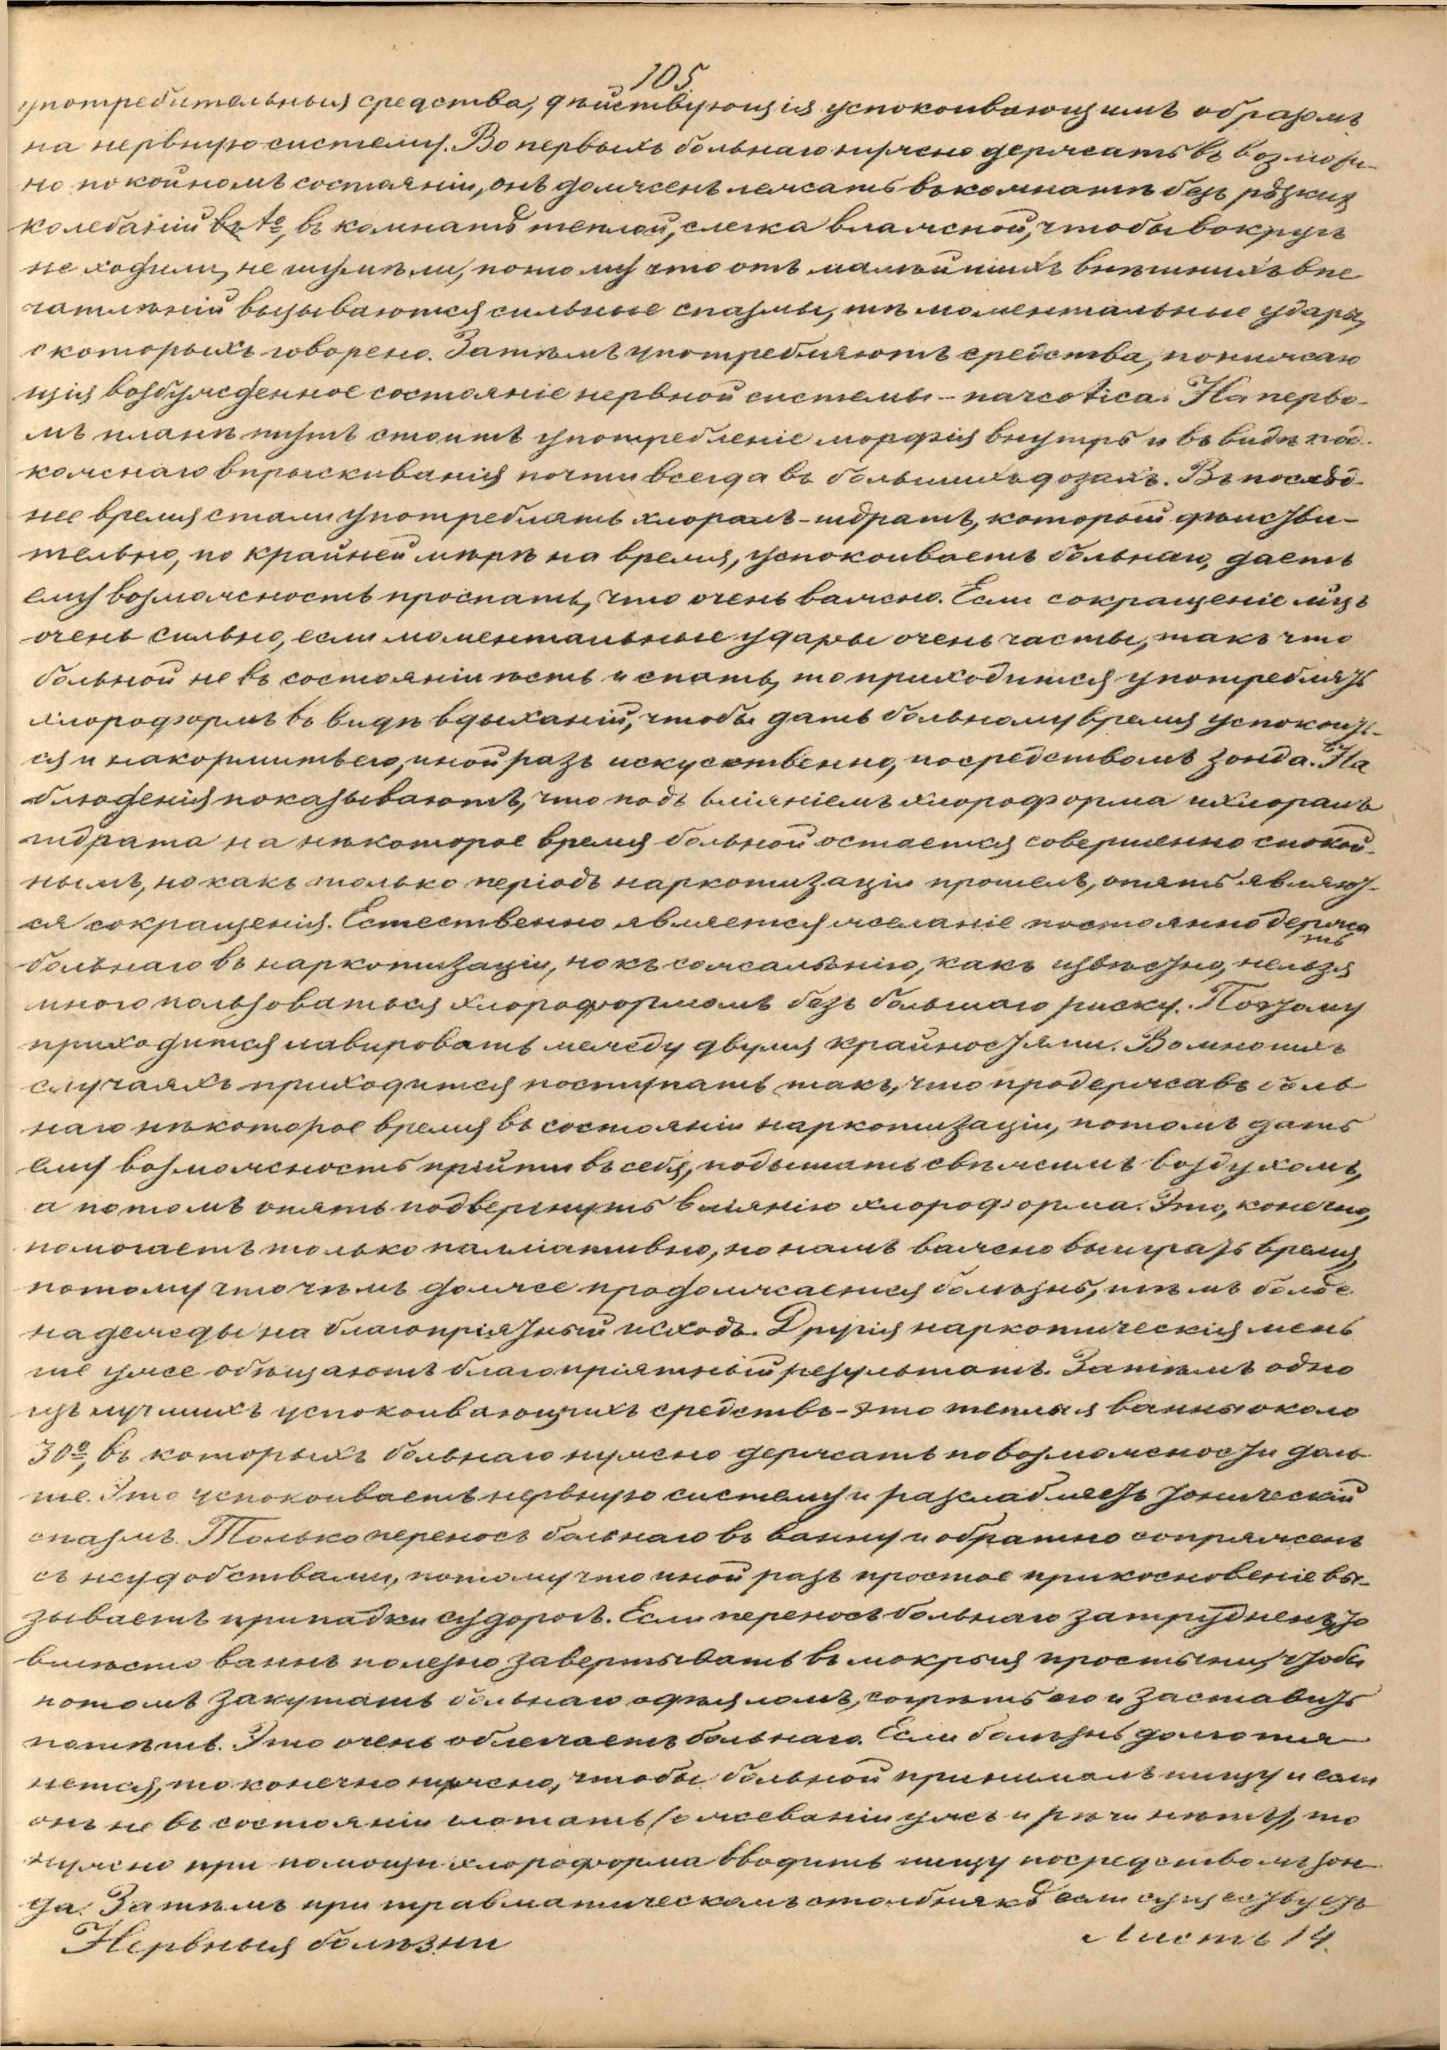 105
употребительныя средства, дѣйствующія успокоивающимъ образомъ
на нервную систему. Во первыхъ больнаго нужно держать въ возмож-
но покойномъ состояніи, онъ долженъ лежать въ комнатѣ безъ рѣзких
колебаній въ t°, въ комнатѣ теплой, слегка влажной, чтобы вокругъ
не ходили, не шумѣли, потому что отъ малѣйшихъ внѣшнихъ впе
чатлѣній вызываются сильные спазмы, тѣ моментальные удары,
о которыхъ говорено. Затѣмъ употребляютъ средства, понижаю
щія возбужденное состояніе нервной системы – narcotica. На перво-
мъ планѣ тутъ стоитъ употребленіе морфія внутрь и въ видѣ под-
кожнаго впрыскиванія почти всегда въ большихъ дозахъ. Въ послѣд-
нее время стали употреблять хлоралъ-гидратъ, который дѣйстви-
тельно, по крайней мѣрѣ на время, успокоиваетъ больнаго, даетъ
ему возможность проспать, что очень важно. Если сокращеніе мцъ
очень сильно, если моментальные удары очень часты, такъ что
больной не въ состояніи ѣсть и спать, то приходится употреблять
хлороформъ въ видѣ вдыханій, чтобы дать больному время успокоить-
ся и накормить его, иной разъ искуственно, посредствомъ зонда. На
блюденія показываютъ, что подъ вліяніемъ хлороформа и хлоралъ
гидрата на нѣкоторое время больной остается совершенно спокой-
нымъ, но какъ только періодъ наркотизаціи прошелъ, опять являют-
ся сокращенія. Естественно является желаніе постоянно держа
ть
больнаго въ наркотизаціи, но къ сожалѣнію, какъ извѣстно, нельзя
много пользоваться хлороформомъ безъ большаго риску. Поэтому
приходится лавировать между двумя крайностями. Во многихъ
случаяхъ приходится поступать такъ, что продержавъ боль
наго нѣкоторое время въ состояніи наркотизаціи, потомъ дать
ему возможность прійти въ себя, подышать свѣжимъ воздухомъ,
а потомъ опять подвергнуть вліянію хлороформа. Это, конечно,
помогаетъ только палліативно, но намъ важно выиграть время,
потому что чѣмъ долже продолжается болѣзнь, тѣмъ болѣе
надежды на благопріятный исходъ. Другія наркотическія мень
ше уже обѣщаютъ благопріятный результатъ. Затѣмъ одно
изъ лучшихъ успокоивающихъ средствъ – это теплыя ванны около
30°, въ которыхъ больнаго нужно держать по возможности доль
ше. Это успокоиваетъ нервную систему и разслабляетъ тоническій
спазмъ. Только переносъ больнаго въ ванну и обратно сопряженъ
съ неудобствами, потому что иной разъ простое прикосновеніе вы-
зываетъ припадки судорогъ. Если переносъ больнаго затрудненъ, то
вмѣсто ваннъ полезно завертывать въ мокрыя простыни, чтобы
потомъ закутать больнаго одѣяломъ, согрѣть его и заставить
потѣть. Это очень облегчаетъ больнаго. Если болѣзнь долго тя
нется, то конечно нужно, чтобы больной принималъ пищу и если
онъ не въ состояніи глотать (о жеваніи ужъ и рѣчи нѣтъ), то
нужно при помощи хлороформа вводить пищу посредствомъ зон
да. Затѣмъ при травматическомъ столбнякѣ если существуетъ
Нервныя болѣзни
Листъ 14.